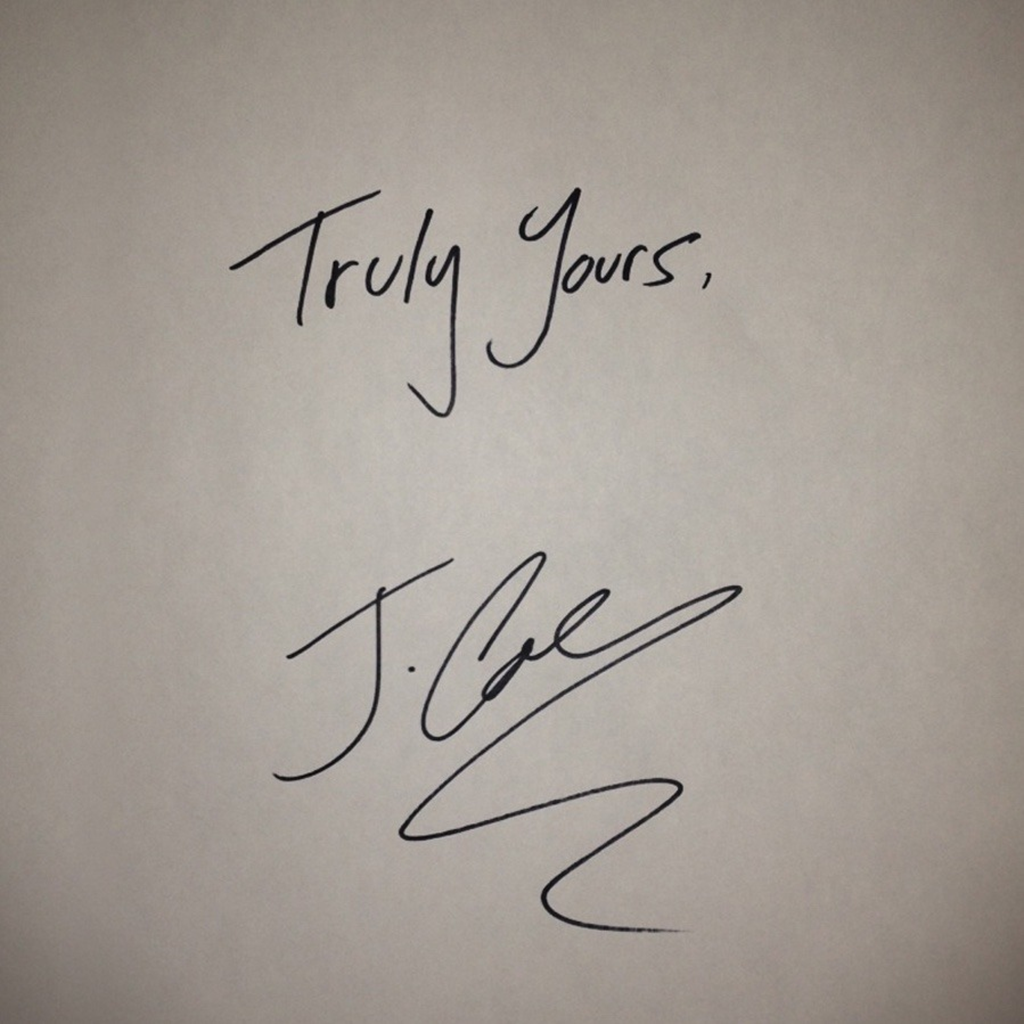 Truly Yours,
J. Cole